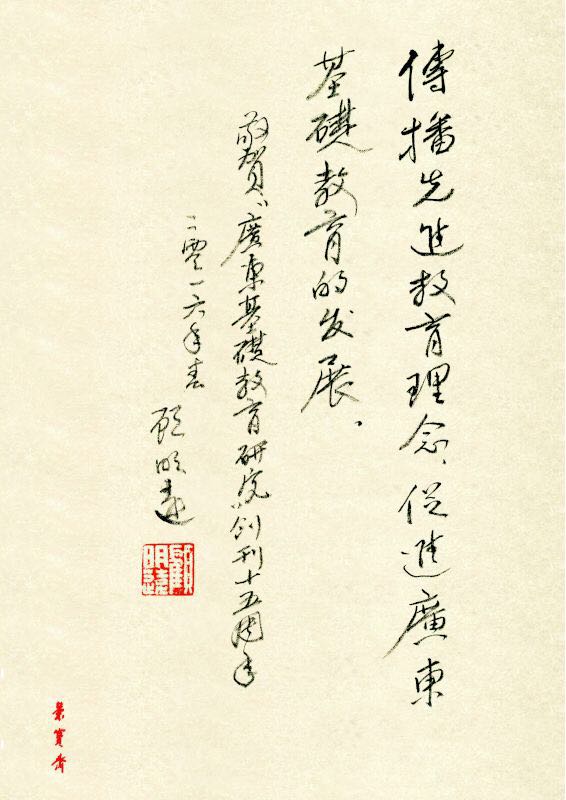 傳播先進教育理念、促進廣東
基礎教育的发展、
敬賀“廣東基礎教育研究”创刊十五周年
二零一六年春
顧明遠
顧明遠
榮寶齋